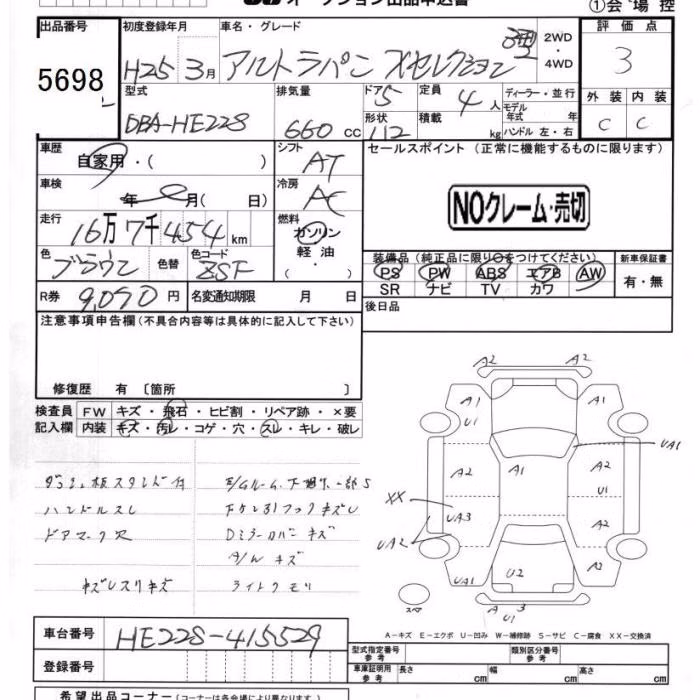 オークション出品申込書
①会場控
出品番号 初度登録年月 車名・グレード 評価点
5698 H25 3月 アルトラパン Xセレクション 2WD・4WD 3
型式 排気量 ドア 5 定員 4人 ディーラー・並行 外装 内装
DBA-HE22S 660cc 形状 112 積載 kg モデル年式 ハンドル 左・右 C C
車歴 自家用・( ) シフト AT セールスポイント(正常に機能するものに限ります)
車検 年 月( 日) 冷房 AC NOクレーム・売切
走行 16万7千454km 燃料 ガソリン
軽油
( ・ )
色 ブラウン 色替 色コード ZSF 装備品(純正品に限り○をつけてください) 新車保証書
PS PW ABS エアB AW 有・無
SR ナビ TV カワ
R券 9,090円 名変通知期限 月 日 後日品
注意事項申告欄(不具合内容等は具体的に記入して下さい)
修復歴 有〔箇所 〕
検査員 FW キズ・飛石・ヒビ割・リペア跡・×要
記入欄 内装 キズ・汚レ・コゲ・穴・スレ・キレ・破レ
ハンドルスレ
ドアマーク穴
Dミラーカバーキズ
A/Wキズ
ライトクモリ
A2 A2
A1 A1
U1
UA1
A2 A1 A2
XX U1
UA3 A2
UA2
UA1 U2 A2
スペア A 3
U1
A-キズ E-エクボ U-凹み W-補修跡 S-サビ C-腐食 XX-交換済
車台番号 HE22S-415529 型式指定番号 参考 類別区分番号 参考
登録番号 車庫証明用 参考 長さ cm 幅 cm 高さ cm
希望出品コーナー(コーナーは各会場により異なります。)